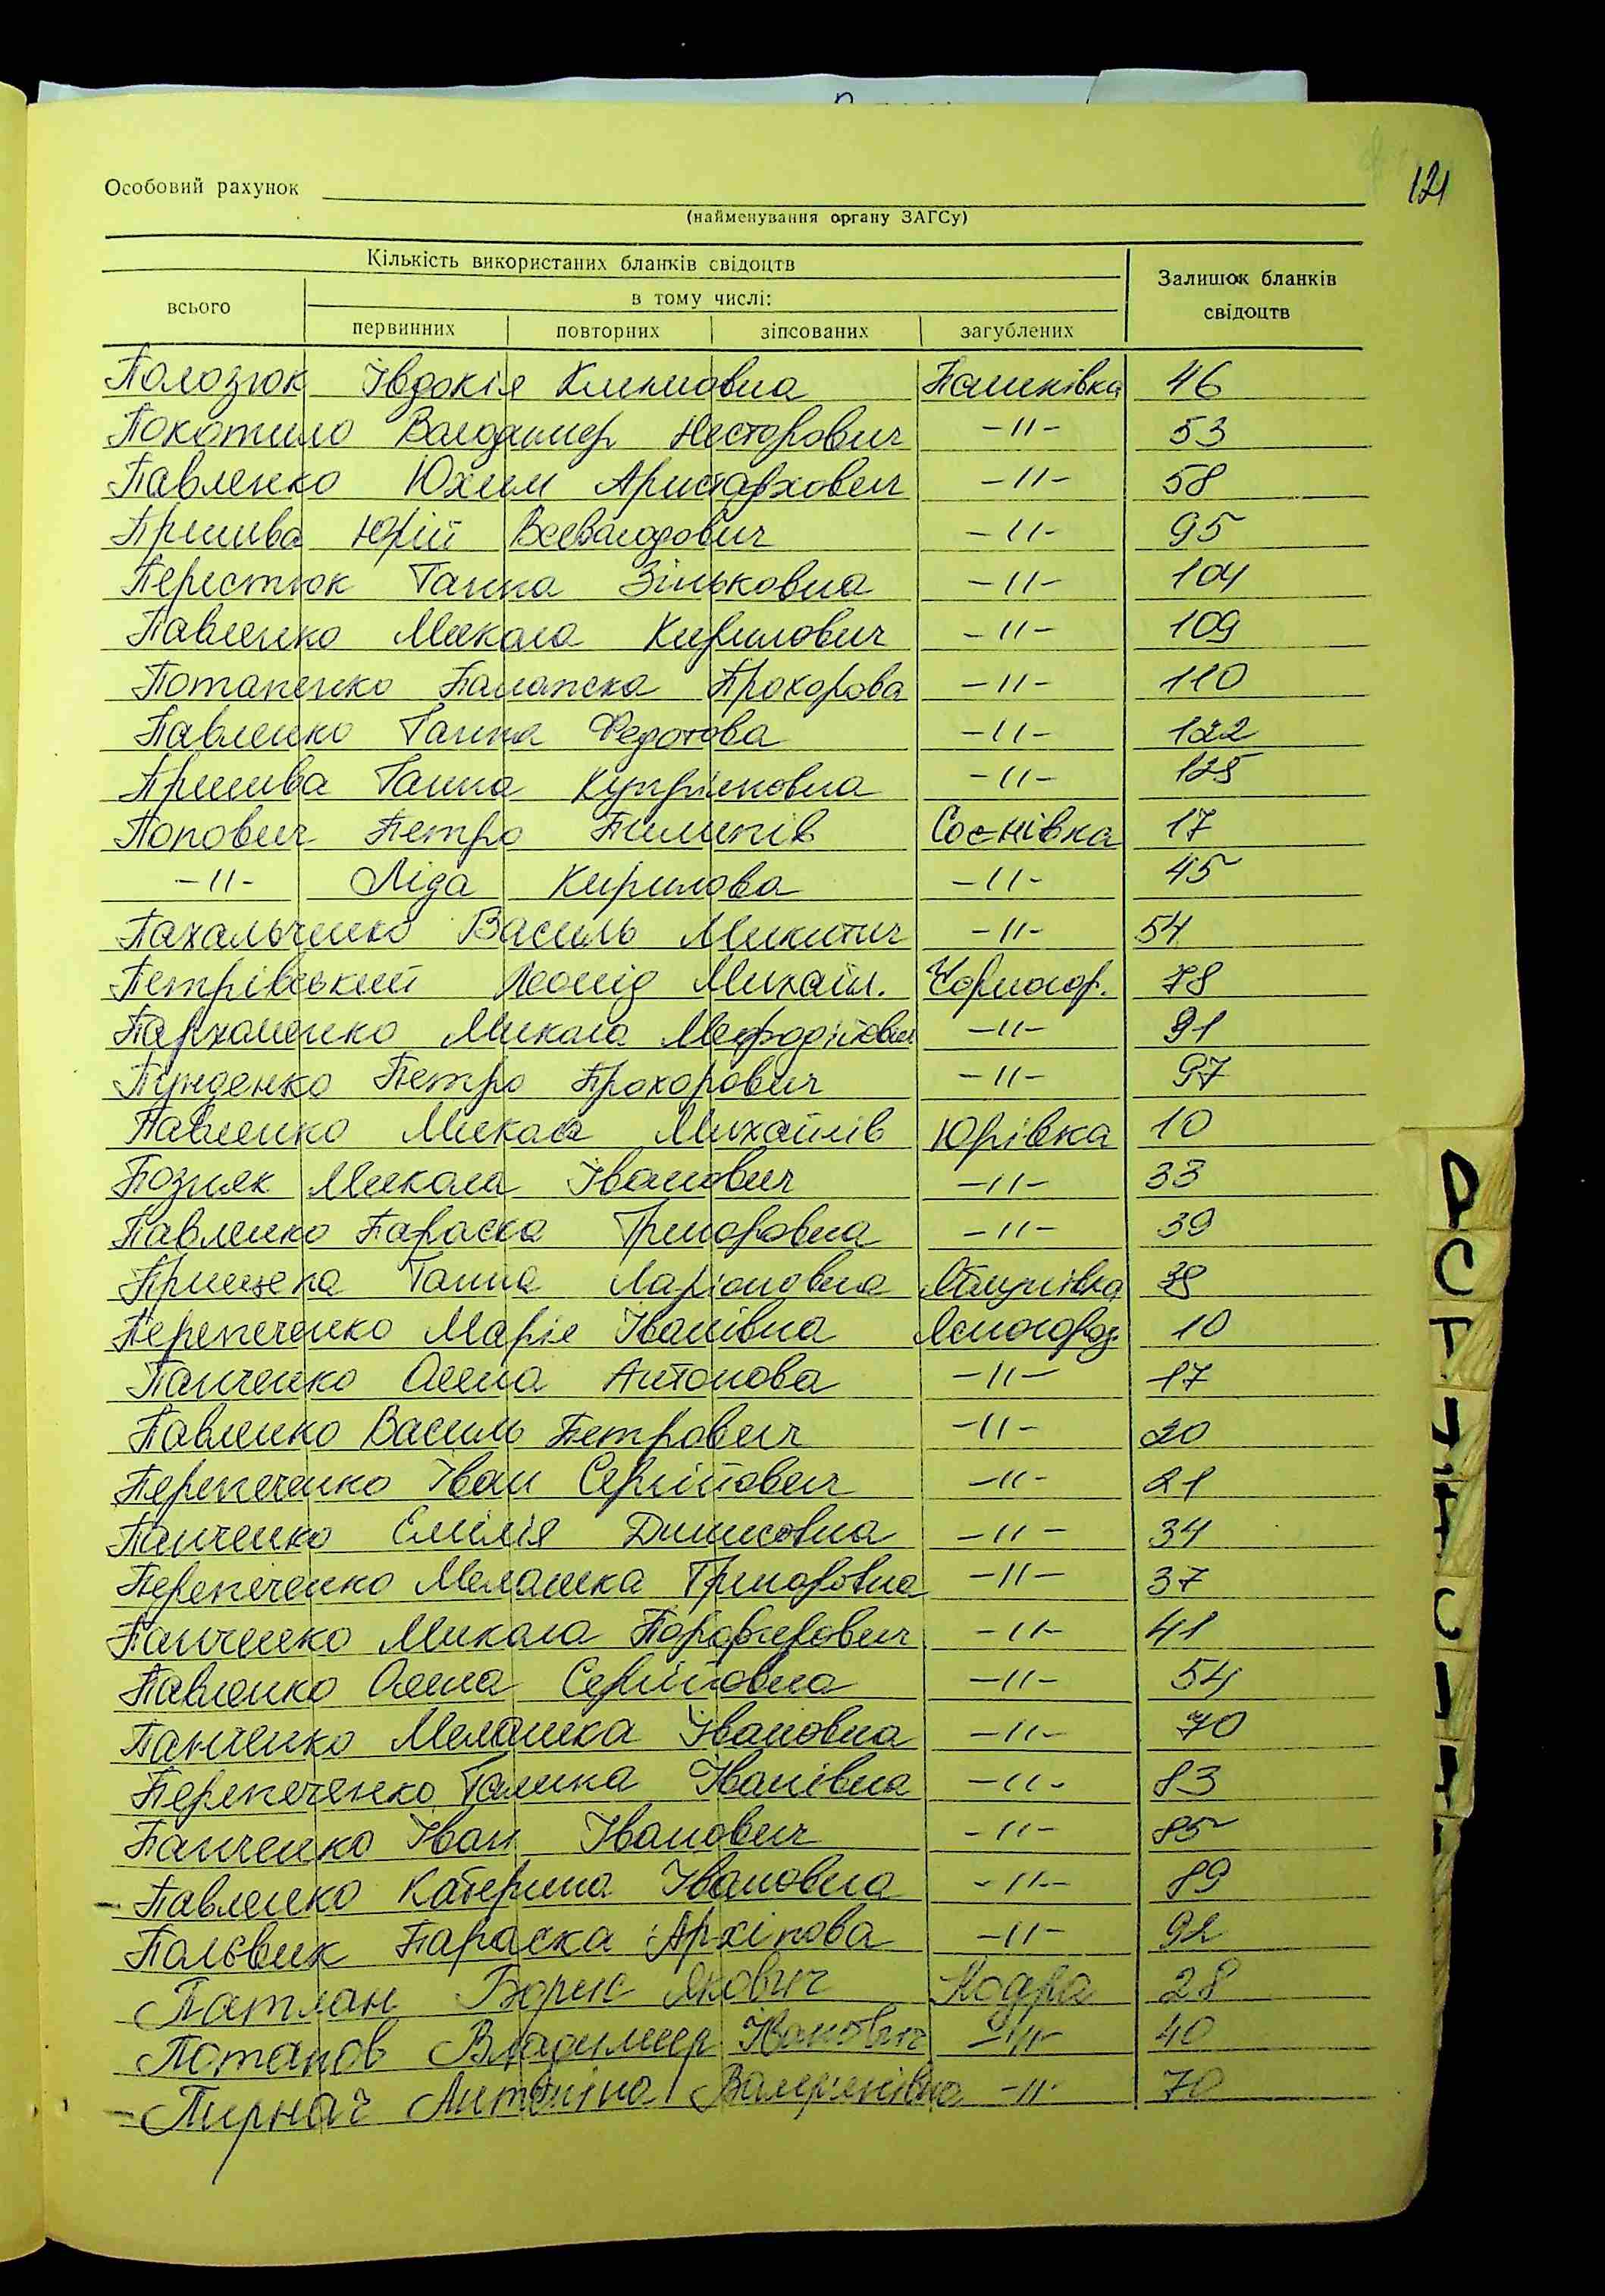 121
Особовий рахунок
(найменування органу ЗАГСу)
Кількість використаних бланків свідоцтв
Залишок бланків свідоцтв
всього
в тому числі:
первинних повторних зіпсованих загублених
Полозюк Івдокія Климовна Пашківка 46
Покотило Володимер Несторович -11- 53
Павленко Юхим Аристархович -11- 58
Прищива Юрій Всеволодович -11- 95
Перестюк Ганна Зільковна -11- 104
Павленко Микола Кирилович -11- 109
Потапенко Палажка Прохорова -11- 110
Павленко Ганна Федотова -11- 122
Ганна Купріяновна -11- 125
Попович Петро Пилипів Соснівка 17
-11- Ліда Кирилова -11- 45
Пахальченко Василь Микитич -11- 54
Петрівський Леонід Михайл. Чорногор. 78
Пархоменко Микола Мефодійович -11- 91
Петро Прохорович -11- 97
Павленко Микола Михайлів Юрівка 10
Позняк Микола Іванович -11- 33
Павленко Параска Григоровна -11- 39
Прищепа Ганна Ларіоновна 38
Перепеченко Марія Іванівна Ясногород. 10
Панченко Олена Антонова -11- 17
Павленко Василь Петрович -11- 20
Перепеченко Іван Сергійович -11- 21
Панченко Емілія Динисовна -11- 34
Перепеченко Мелашка Григоровна -11- 37
Панченко Микола Порфирович -11- 41
Павленко Олена Сергійовна -11- 54
Панченко Мелашка Івановна -11- 70
Перепеченко Галина Іванівна -11- 83
Панченко Іван Іванович -11- 85
Павленко Катерина Івановна -11- 89
Польвик Параска Архіпова -11- 92
Патлан Борис Якович Кодра 28
Потапов Владимир Іванович -11- 40
Пирнач Антоніна Валеріянівна -11- 70